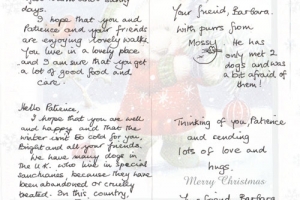 days.
I hope that you and
Patience and your friends
are enjoying lovely walks.
You live in a lovely place
and I am sure that you get
a lot of good food and
care.
Hello Patience,
I hope that you are well
and happy and that the
winter will be cold for you,
Bright and all your friends.
We have many dogs in
the U.K. who live in special
sanctuaries, because they have
been abandoned or cruelly
treated. In this country,
Your friend, Barbara.
with purrs from
Mossy. He has
only met 2
dogs and was
a bit afraid of
them!
Thinking of you, Patience
and sending
lots of love and
hugs.
Merry Christmas
Your friend, Barbara